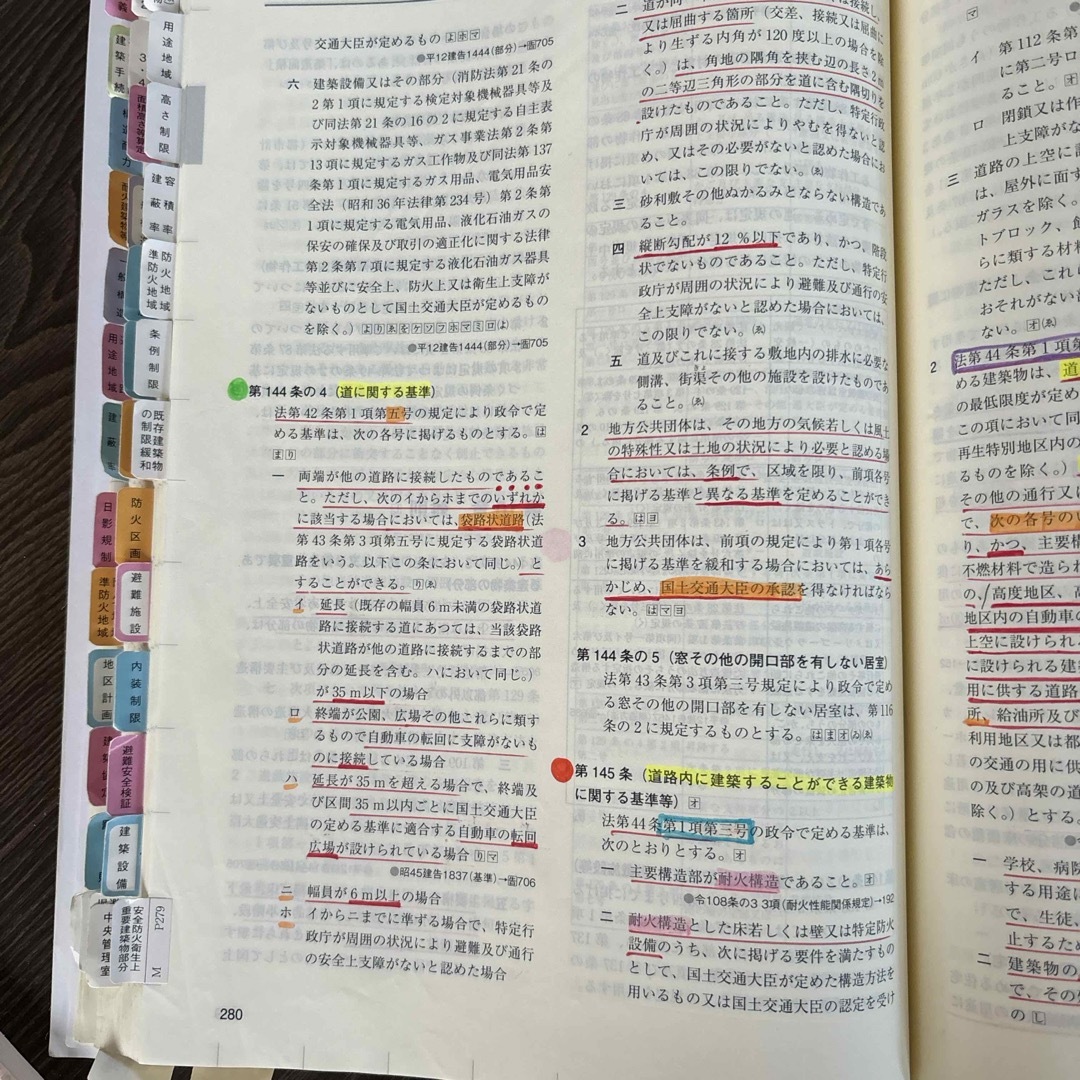 交通大臣が定めるもの
●平12建告1444(部分)→圏705
六 建築設備又はその部分（消防法第21条の
2第1項に規定する検定対象機械器具等及
び同法第21条の16の2に規定する自主表
示対象機械器具等、ガス事業法第2条第
13項に規定するガス工作物及び同法第137
条第1項に規定するガス用品、電気用品安
全法（昭和36年法律第234号）第2条第
1項に規定する電気用品、液化石油ガスの
保安の確保及び取引の適正化に関する法律
第2条第7項に規定する液化石油ガス器具
等並びに安全上、防火上又は衛生上支障が
ないものとして国土交通大臣が定めるもの
を除く。）
●平12建告1444(部分)→圏705
第144条の4（道に関する基準）
法第42条第1項第五号の規定により政令で定
める基準は、次の各号に掲げるものとする。は
まり
一 両端が他の道路に接続したものであるこ
と。ただし、次のイからホまでのいずれか
に該当する場合においては、袋路状道路(法
第43条第3項第五号に規定する袋路状道
路をいう。以下この条において同じ。）と
することができる。り(ゑ)
イ 延長（既存の幅員6m未満の袋路状道
路に接続する道にあつては、当該袋路
状道路が他の道路に接続するまでの部
分の延長を含む。ハにおいて同じ。）
が35m以下の場合
ロ 終端が公園、広場その他これらに類す
るもので自動車の転回に支障がないも
のに接続している場合
ハ 延長が35mを超える場合で、終端及
び区間35m以内ごとに国土交通大臣
の定める基準に適合する自動車の転回
広場が設けられている場合 りマ
●昭45建告1837(基準)→圏706
ニ 幅員が6m以上の場合
ホ イからニまでに準ずる場合で、特定行
政庁が周囲の状況により避難及び通行
の安全上支障がないと認めた場合
280
又は屈曲する箇所（交差、接続又は屈曲に
より生ずる内角が120度以上の場合を除
く。）は、角地の隅角を挟む辺の長さ2
の二等辺三角形の部分を道に含む隅切りを
設けたものであること。ただし、特定行政
庁が周囲の状況によりやむを得ないと認
め、又はその必要がないと認めた場合にお
いては、この限りでない。(ゑ)
三 砂利敷その他ぬかるみとならない構造であ
ること。
四 縦断勾配が12%以下であり、かつ、階段
状でないものであること。ただし、特定行
政庁が周囲の状況により避難及び通行の安
全上支障がないと認めた場合においては、
この限りでない。(ゑ)
五 道及びこれに接する敷地内の排水に必要な
側溝、街渠その他の施設を設けたものであ
ること。(ゑ)
2 地方公共団体は、その地方の気候若しくは風土
の特殊性又は土地の状況により必要と認める場
合においては、条例で、区域を限り、前項各号
に掲げる基準と異なる基準を定めることができ
る。はヨ
3 地方公共団体は、前項の規定により第1項各号
に掲げる基準を緩和する場合においては、あら
かじめ、国土交通大臣の承認を得なければなら
ない。はマヨ
第144条の5（窓その他の開口部を有しない居室）
法第43条第3項第三号規定により政令で定め
る窓その他の開口部を有しない居室は、第116
条の2に規定するものとする。はまオ(ゐ)(ゑ)
第145条（道路内に建築することができる建築物
に関する基準等）オ
法第44条第1項第三号の政令で定める基準は、
次のとおりとする。オ
一 主要構造部が耐火構造であること。オ
●令108条の3 3項(耐火性能関係規定)→192
二 耐火構造とした床若しくは壁又は特定防火
設備のうち、次に掲げる要件を満たすもの
として、国土交通大臣が定めた構造方法を
用いるもの又は国土交通大臣の認定を受け
マ
イ 第112条第
に第二号ロ
ること。オ
ロ 閉鎖又は作
上支障がな
三 道路の上空に
は、屋外に面す
ガラスを除く。
トブロック、
らに類する材料
ただし、これ
おそれがない
ない。オ(ゑ)
2 法第44条第1項第
める建築物は、道
の最低限度が定め
この項において同
再生特別地区内の
るものを除く。）
その他の通行又は
で、次の各号のい
り、かつ、主要構
不燃材料で造られ
の、高度地区、高
地区内の自動車の
上空に設けられ
に設けられる建
用に供する道路
所、給油所及び
利用地区又は都
の交通の用に供
の及び高架の道
除く。）とする。
一 学校、病院
する用途に
で、生徒、
止するため
二 建築物の
で、その
の
用途地域
高さ制限
容積率
建蔽率
防火地域
準防火地域
条例制限
既存建築物
の制限緩和
防火区画
避難施設
内装制限
避難安全検証
建築設備
建築手続
用途地域
建蔽率
日影規制
準防火地域
地区計画
P279
安全防火衛生上
重要建築物部分
M
中央管理室